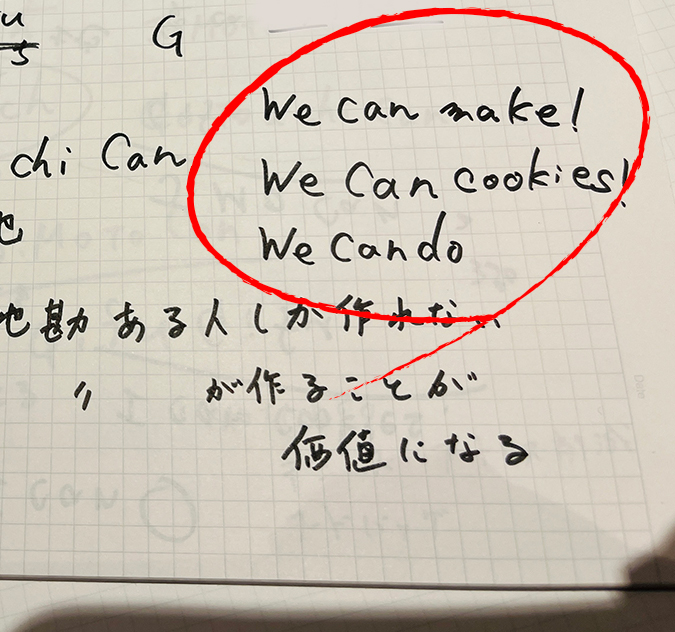 G
We can make!
chi Can
We Can cookies!
We can do
地勘ある人しか作れない
〃 が作ることが
価値になる